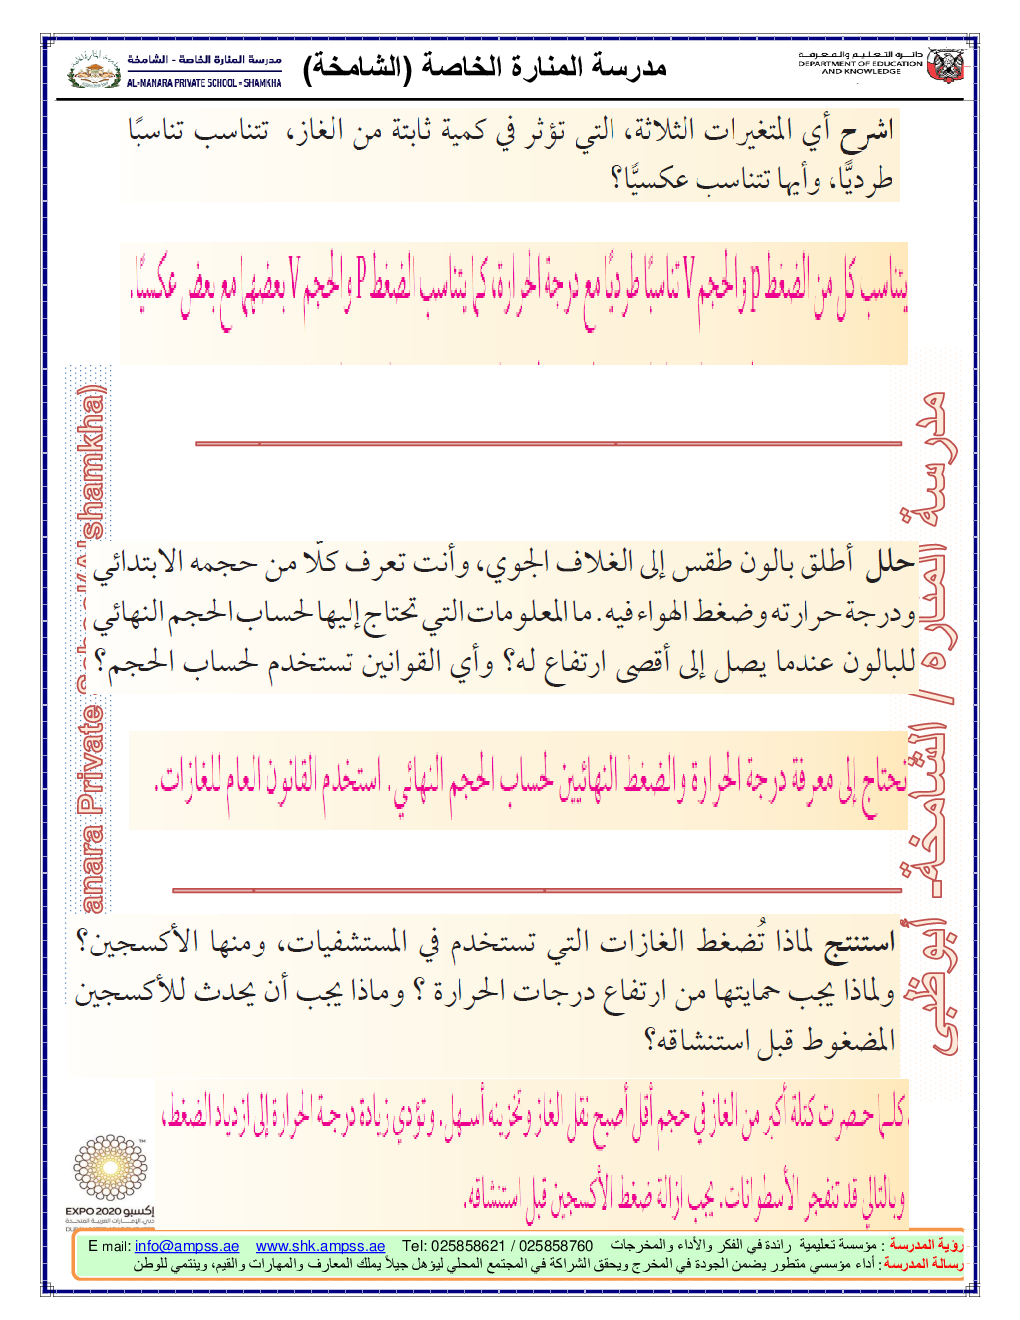 مدرسة المنارة الخاصة - الشامخة
AL-MANARA PRIVATE SCHOOL - SHAMKHA
مدرسة المنارة الخاصة (الشامخة)
دائرة التعليم والمعرفة
DEPARTMENT OF EDUCATION
AND KNOWLEDGE
اشرح أي المتغيرات الثلاثة، التي تؤثر في كمية ثابتة من الغاز، تتناسب تناسبًا
طرديًّا، وأيها تتناسب عكسيًّا؟
يتناسب كل من الضغط p والحجم V تناسبًا طرديًّا مع درجة الحرارة، كما يتناسب الضغط P والحجم V بعضهما مع بعض عكسيًّا.
حلل أطلق بالون طقس إلى الغلاف الجوي، وأنت تعرف كلًّا من حجمه الابتدائي
ودرجة حرارته وضغط الهواء فيه. ما المعلومات التي تحتاج إليها لحساب الحجم النهائي
للبالون عندما يصل إلى أقصى ارتفاع له؟ وأي القوانين تستخدم لحساب الحجم؟
تحتاج إلى معرفة درجة الحرارة والضغط النهائيين لحساب الحجم النهائي. استخدم القانون العام للغازات.
استنتج لماذا تُضغط الغازات التي تستخدم في المستشفيات، ومنها الأكسجين؟
ولماذا يجب حمايتها من ارتفاع درجات الحرارة ؟ وماذا يجب أن يحدث للأكسجين
المضغوط قبل استنشاقه؟
كلما حصرت كتلة أكبر من الغاز في حجم أقل أصبح نقل الغاز وتخزينه أسهل. وتؤدي زيادة درجة الحرارة إلى ازدياد الضغط،
وبالتالي قد تنفجر الأسطوانات. يجب إزالة ضغط الأكسجين قبل استنشاقه.
مدرسة المنارة / الشامخة - أبوظبى
anara Private
shamkha)
إكسبو 2020
EXPO 2020
دبي، الإمارات العربية المتحدة
رؤية المدرسة : مؤسسة تعليمية رائدة في الفكر والأداء والمخرجات E mail: info@ampss.ae www.shk.ampss.ae Tel: 025858621 / 025858760
رسالة المدرسة : أداء مؤسسي متطور يضمن الجودة في المخرج ويحقق الشراكة في المجتمع المحلي ليؤهل جيلاً يملك المعارف والمهارات والقيم، وينتمي للوطن